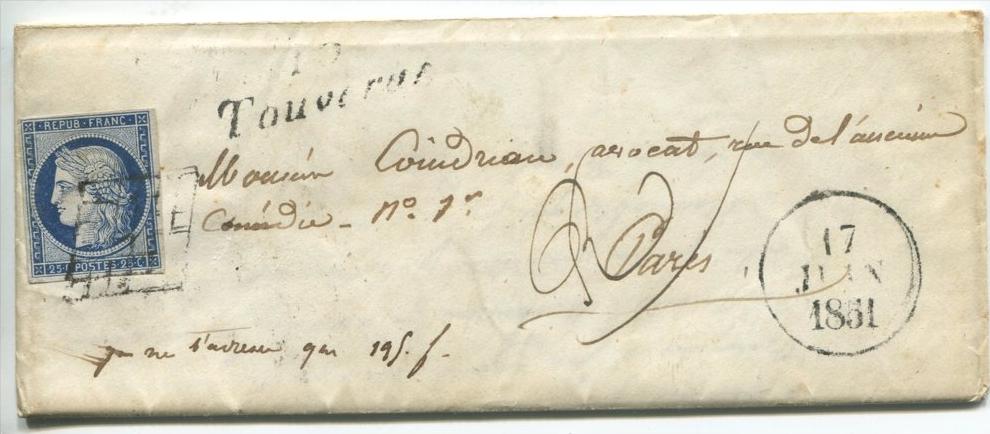 REPUB. FRANC.
25.C. POSTES. 25.C.
Monsieur Coindriau, avocat, rue de l'ancienne
Comédie - No. 1er
Paris
17
JUIN
1851
je ne s'adresse que 195. f.